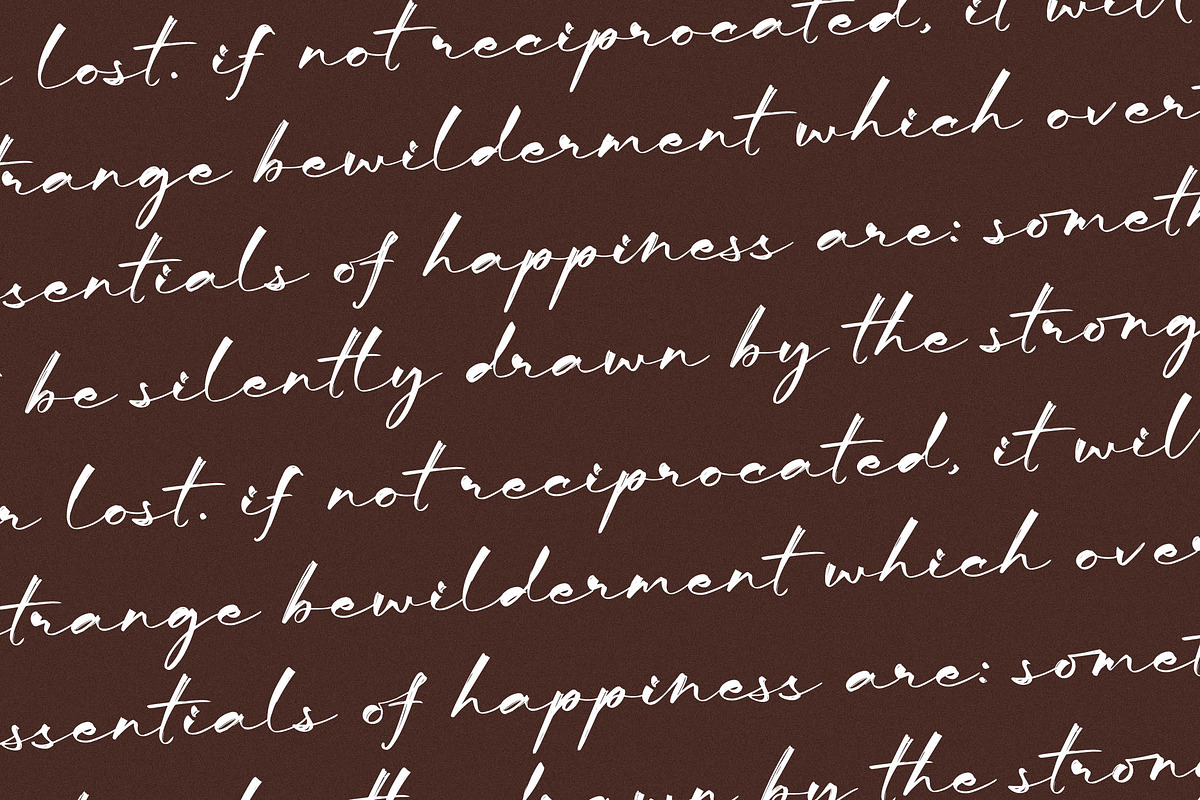 lost. if not reciprocated, it will
trange bewilderment which over
sentials of happiness are: someth
be silently drawn by the strong
r lost. if not reciprocated, it wil
trange bewilderment which over
ssentials of happiness are: somet
by the stron